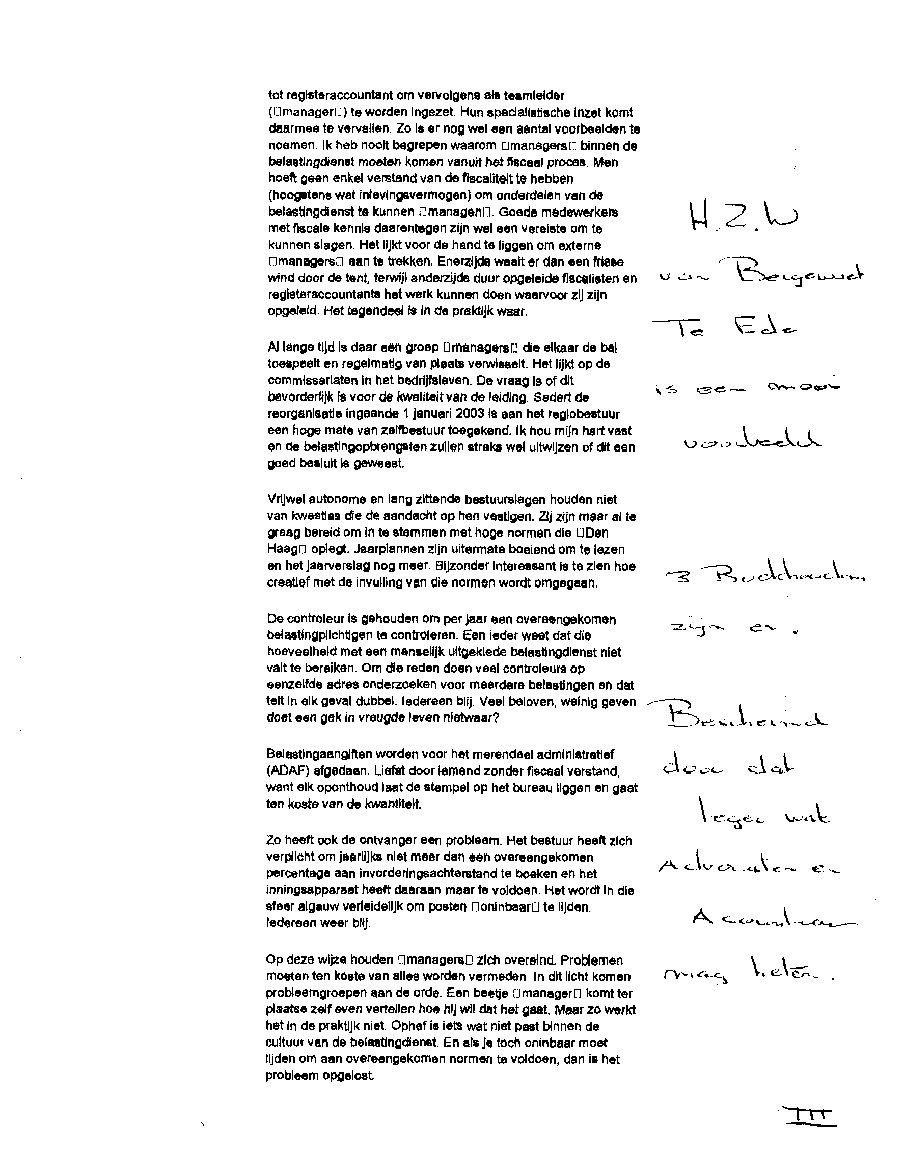 tot registeraccountant om vervolgens als teamleider
(□manager□) te worden ingezet. Hun specialistische inzet komt
daarmee te vervallen. Zo is er nog wel een aantal voorbeelden te
noemen. Ik heb nooit begrepen waarom □managers□ binnen de
belastingdienst moeten komen vanuit het fiscaal proces. Men
hoeft geen enkel verstand van de fiscaliteit te hebben
(hoogstens wat inlevingsvermogen) om onderdelen van de
belastingdienst te kunnen □managen□. Goede medewerkers
met fiscale kennis daarentegen zijn wel een vereiste om te
kunnen slagen. Het lijkt voor de hand te liggen om externe
□managers□ aan te trekken. Enerzijds waait er dan een frisse
wind door de tent, terwijl anderzijds duur opgeleide fiscalisten en
registeraccountants het werk kunnen doen waarvoor zij zijn
opgeleid. Het tegendeel is in de praktijk waar.
Al lange tijd is daar een groep □managers□ die elkaar de bal
toespeelt en regelmatig van plaats verwisselt. Het lijkt op de
commissariaten in het bedrijfsleven. De vraag is of dit
bevorderlijk is voor de kwaliteit van de leiding. Sedert de
reorganisatie ingaande 1 januari 2003 is aan het regiobestuur
een hoge mate van zelfbestuur toegekend. Ik hou mijn hart vast
en de belastingopbrengsten zullen straks wel uitwijzen of dit een
goed besluit is geweest.
Vrijwel autonome en lang zittende bestuurslagen houden niet
van kwesties die de aandacht op hen vestigen. Zij zijn maar al te
graag bereid om in te stemmen met hoge normen die □Den
Haag□ oplegt. Jaarplannen zijn uitermate boeiend om te lezen
en het jaarverslag nog meer. Bijzonder interessant is te zien hoe
creatief met de invulling van die normen wordt omgegaan.
De controleur is gehouden om per jaar een overeengekomen
belastingplichtigen te controleren. Een ieder weet dat die
hoeveelheid met een menselijk uitgeklede belastingdienst niet
valt te bereiken. Om die reden doen veel controleurs op
eenzelfde adres onderzoeken voor meerdere belastingen en dat
telt in elk geval dubbel. Iedereen blij. Veel beloven, weinig geven
doet een gek in vreugde leven nietwaar?
Belastingaangiften worden voor het merendeel administratief
(ADAF) afgedaan. Liefst door iemand zonder fiscaal verstand,
want elk oponthoud laat de stempel op het bureau liggen en gaat
ten koste van de kwantiteit.
Zo heeft ook de ontvanger een probleem. Het bestuur heeft zich
verplicht om jaarlijks niet meer dan een overeengekomen
percentage aan invorderingsachterstand te boeken en het
inningsapparaat heeft daaraan maar te voldoen. Het wordt in die
sfeer algauw verleidelijk om posten □oninbaar□ te lijden.
Iedereen weer blij.
Op deze wijze houden □managers□ zich overeind. Problemen
moeten ten koste van alles worden vermeden. In dit licht komen
probleemgroepen aan de orde. Een beetje □manager□ komt ter
plaatse zelf even vertellen hoe hij wil dat het gaat. Maar zo werkt
het in de praktijk niet. Ophef is iets wat niet past binnen de
cultuur van de belastingdienst. En als je toch oninbaar moet
lijden om aan overeengekomen normen te voldoen, dan is het
probleem opgelost.
H.Z.W
van
Te Ede
is een mooi
voorbeeld
3
zijn er.
Beschermd
door dat
leger wat
Advocaten en
mag heten.
III